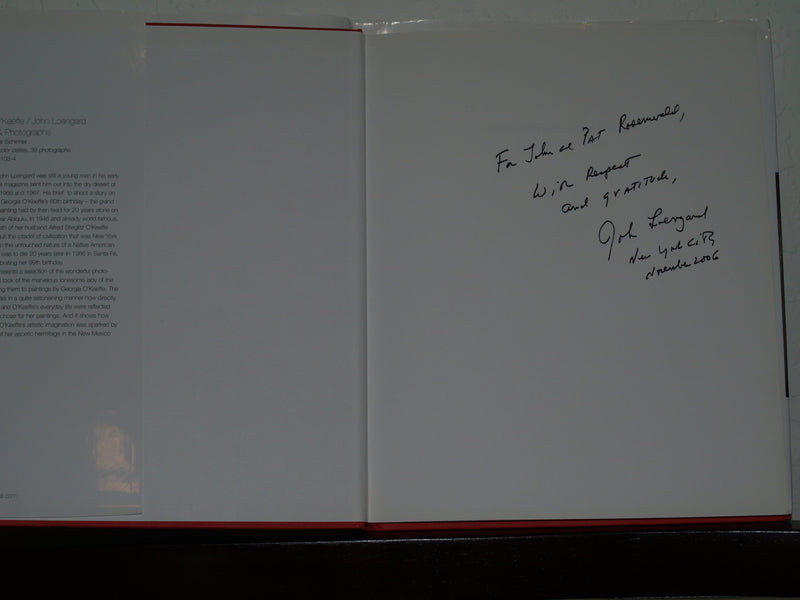 O'Keeffe / John Loengard
& Photographs
e Schirmer
color plates, 39 photographs
103-4
John Loengard was still a young man in his early
e magazine sent him out into the dry desert of
1966 and 1967. His brief: to shoot a story on
Georgia O'Keeffe's 80th birthday – the grand
painting had by then lived for 20 years alone on
ar Abiquiu. In 1946 and already world famous,
ath of her husband Alfred Stieglitz O'Keeffe
ut the citadel of civilization that was New York
o the untouched nature of a Native American
was to die 20 years later in 1986 in Santa Fé,
brating her 99th birthday.
resents a selection of the wonderful photo-
d took of the marvelous lonesome lady of the
ng them to paintings by Georgia O'Keeffe. The
als in a quite astonishing manner how directly
and O'Keeffe's everyday life were reflected
chose for her paintings. And it shows how
O'Keeffe's artistic imagination was sparked by
of her ascetic hermitage in the New Mexico
al.com
For John & Pat Rosenwald,
With Respect
and gratitude,
John Loengard
New York City
November 2006